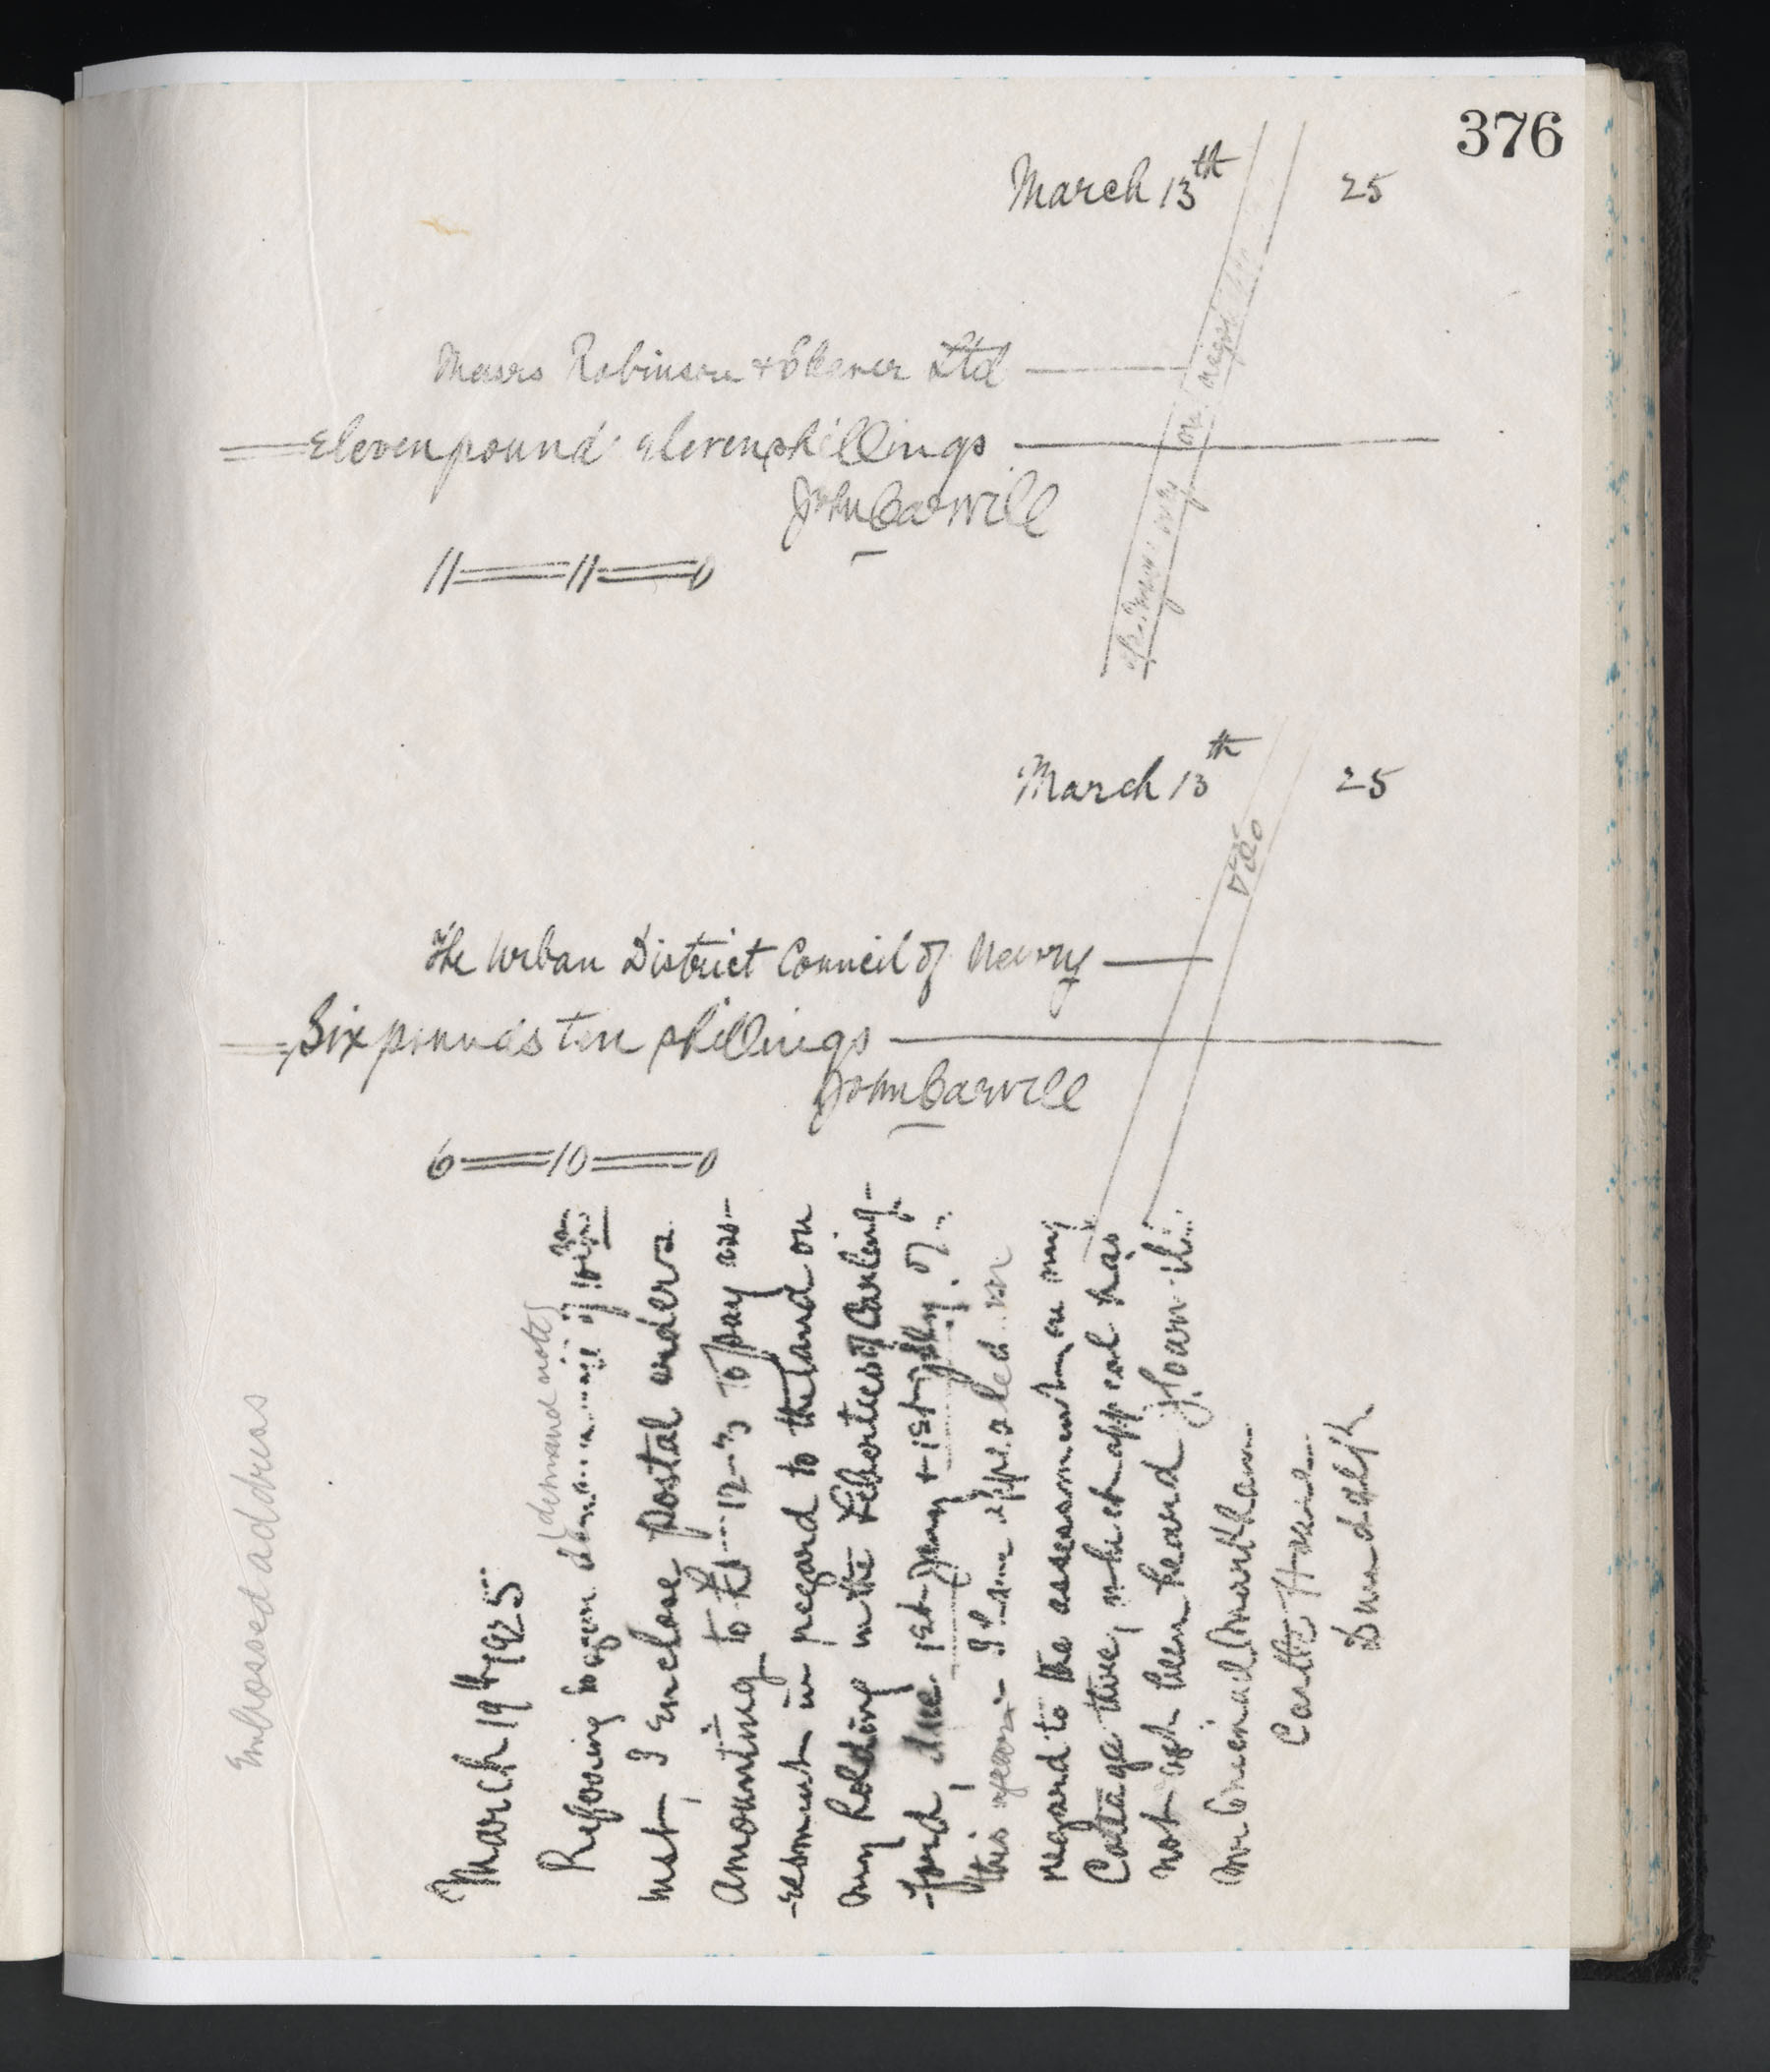 376
March 13th 25
Messrs Robinson & Cleaver Ltd
Eleven pound eleven shillings
John Carvill
11 = 11 = 0
March 13th 25
The Urban District Council of Newry
Six pounds ten shillings
John Carvill
6 = 10 = 0
Embossed address
March 19th 1925
(demand note)
Referring to your of 10th
inst, I enclose postal orders
amounting to £ 12-3 to pay as-
-sessment in regard to the land on
my holding in the Liberties of Carling-
-ford, due 1st Jany & 1st July of
this year. I have appealed in
regard to the assessment on my
Cottage there, which appeal has
not yet been heard
Castle
Dundalk